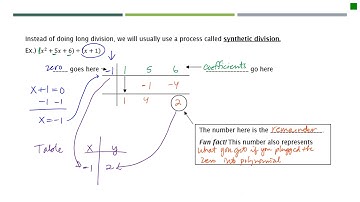 Instead of doing long division, we will usually use a process called synthetic division.
Ex.) (x² + 5x + 6) ÷ (x + 1)
zero goes here → -1 | 1 5 6 ← coefficients go here
x+1=0
-1 -4
-1 -1
1 4 2
x=-1
The number here is the remainder.
Fun fact! This number also represents
what you get if you plugged the
zero into polynomial
Table
x y
-1 2